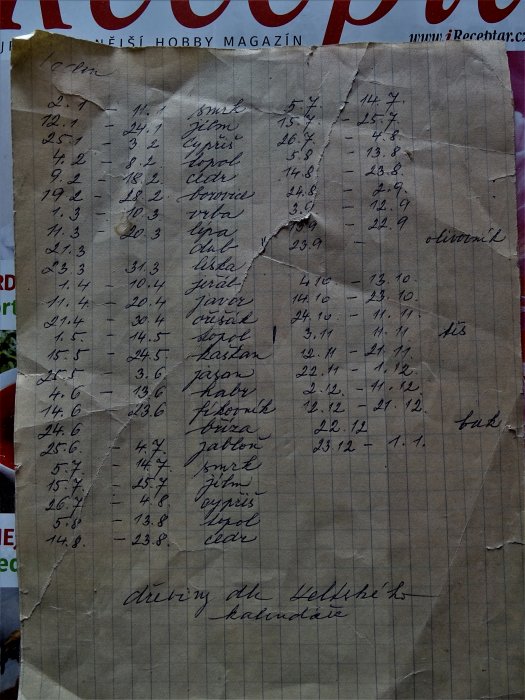 Receptář
NĚJŠÍ HOBBY MAGAZÍN www.iReceptar.cz
2.1 - 11.1 smrk 5.7 14.7.
12.1 - 24.1 jilm 15.7 - 25.7
25.1 - 3.2 cypřiš 26.7 - 4.8
4.2 - 8.2 topol 5.8 - 13.8
9.2 - 18.2 cedr 14.8 - 23.8
19.2 - 28.2 borovice 24.8 - 2.9.
1.3 - 10.3 vrba 3.9 - 12.9
11.3 - 20.3 lípa 13.9 - 22.9
21.3 dub 23.9 - olivovník
23.3 31.3 líska
1.4 - 10.4 jeřáb 4.10 - 13.10.
11.4 - 20.4 javor 14.10 - 23.10.
21.4 - 30.4 ořešák 24.10 - 11.11.
1.5 - 14.5 topol 3.11 11.11 tis
15.5 - 24.5 kaštan 12.11 - 21.11.
25.5 - 3.6 jasan 22.11 - 1.12.
4.6 - 13.6 habr 2.12. - 11.12.
14.6 23.6 fíkovník 12.12 - 21.12.
24.6 bříza 22.12 buk
25.6 - 4.7. jabloň 23.12 - 1.1.
5.7 - 14.7. smrk
15.7 - 25.7 jilm
26.7 - 4.8. cypřiš
5.8 - 13.8 topol
14.8. - 23.8. cedr
dřeviny dle Keltského
kalendáře